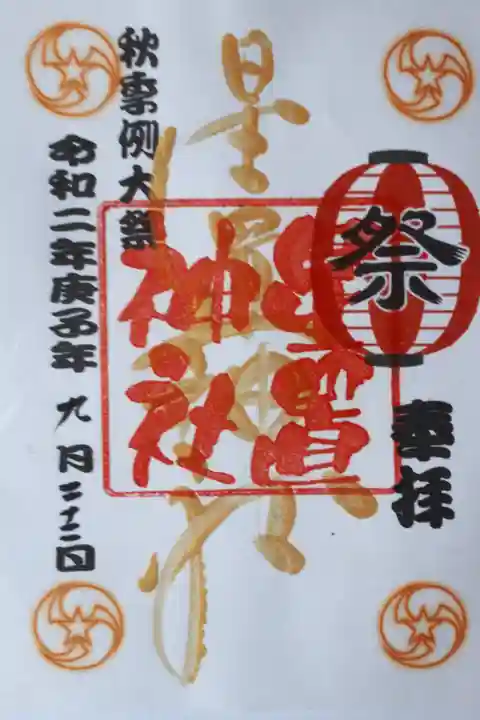 祭
奉拝
星置神社
星置
神社
秋季例大祭
令和二年庚子年 九月二十二日